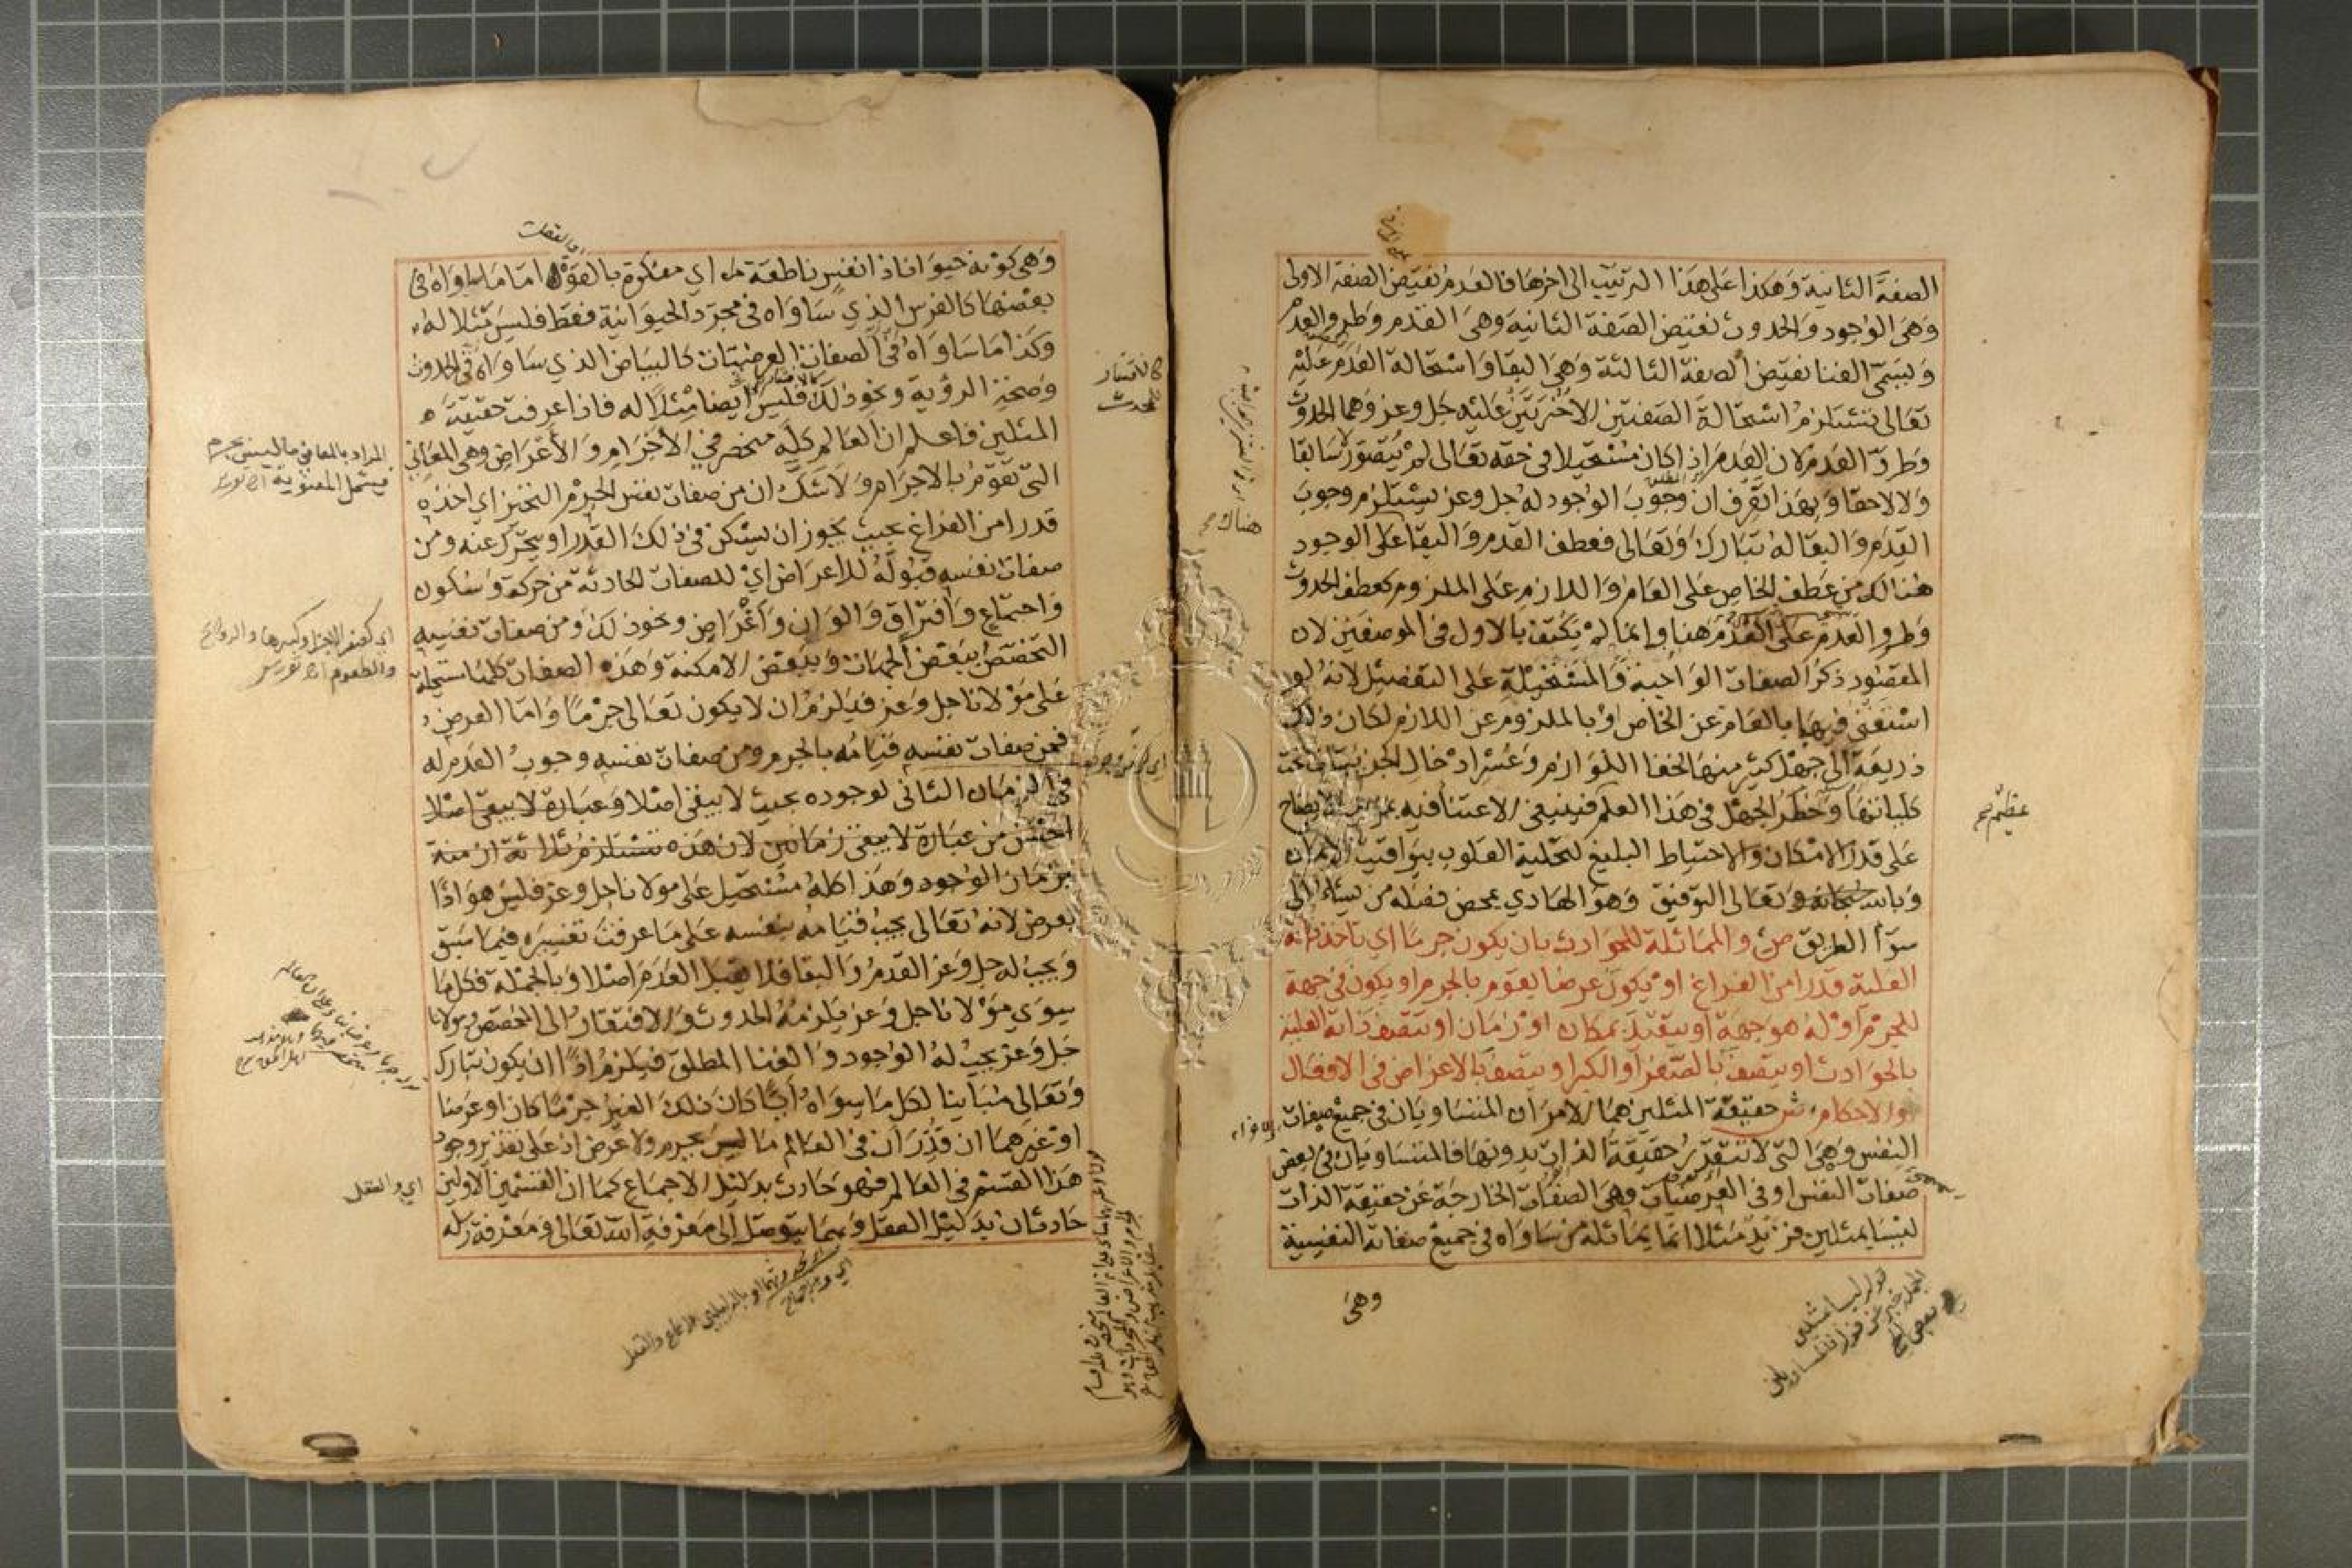 الصفة الثانية وهكذا على هذا الترتيب الى اخرها فالعدم نقيض الصفة الاولى
وهي الوجود والحدوث نقيض الصفة الثانية وهي القدم وطرو العدم
ويسمى الفنا نقيض الصفة الثالثة وهي البقا واستحالة العدم عليه
تعالى تستلزم استحالة الصفتين الاخريتين عليه جل وعز وهما الحدوث
وطرو العدم لان العدم اذا كان مستحيلا في حقه تعالى لم يتصور لا سابقا
ولا لاحقا وبهذا تعرف ان وجوب الوجود له جل وعز يستلزم وجوب
القدم والبقا له تبارك وتعالى فعطف القدم والبقا على الوجود
هنالك من عطف الخاص على العام واللازم على الملزوم كعطف الحدوث
وطرو العدم على العدم هنا وانما لم يكتف بالاول في الموضعين لان
المقصود ذكر الصفات الواجبة والمستحيلة على التفصيل لانه لو
استغنى فيها بالعام عن الخاص او بالملزوم عن اللازم لكان ذلك
ذريعة الى جهل كثير منها لخفا اللوازم وعسر ادخال الجزئيات تحت
كلياتها وخطر الجهل في هذا العلم فينبغي الاعتنا فيه بمزيد الايضاح
على قدر الامكان والاحتياط البليغ لتحلية القلوب بيواقيت الايمان
وبالله سبحانه وتعالى التوفيق وهو الهادي بمحض فضله من يشاء الى
سواء الطريق ص والمماثلة للحوادث بان يكون جرما اي تاخذ ذاته
العلية قدرا من الفراغ او يكون عرضا يقوم بالجرم او يكون في جهة
للجرم او له هو جهة او يتقيد بمكان او زمان او تتصف ذاته العلية
بالحوادث او يتصف بالصغر او الكبر او يتصف بالاغراض في الافعال
والاحكام ش حقيقة المثلين هما الامران المتساويان في جميع صفات
النفس وهي التي لا تتقرر حقيقة الذات بدونها فالمتساويان في بعض
صفات النفس او في العرضيات وهي الصفات الخارجة عن حقيقة الذات
ليسا بمثلين فزيد مثلا انما يماثله من ساواه في جميع صفاته النفسية
وهي
عظيم صح
هناك صح
وهي كونه حيوانا ذا نفس ناطقة اي مفكرة بالقوة اما ما ساواه في
بعضها كالفرس الذي ساواه في مجرد الحيوانية فقط فليس مثلا له
وكذا ما ساواه في الصفات العرضيات كالبياض الذي ساواه في الحدوث
وصحة الرؤية ونحو ذلك فليس ايضا مثلا له فاذا عرفت حقيقة
المثلين فاعلم ان العالم كله منحصر في الاجرام والاعراض وهي المعاني
التي تقوم بالاجرام ولا شك ان من صفات نفس الجرم التحيز اي اخذه
قدرا من الفراغ بحيث يجوز ان يسكن في ذلك القدر او يتحرك عنه ومن
صفات نفسه قبوله للاعراض اي للصفات الحادثة من حركة وسكون
واجتماع وافتراق والوان واغراض ونحو ذلك ومن صفات نفسه
التخصيص ببعض الجهات وببعض الامكنة وهذه الصفات كلها مستحيلة
على مولانا جل وعز فيلزم ان لا يكون تعالى جرما واما العرض
فمن صفات نفسه قيامه بالجرم ومن صفات نفسه وجوب العدم له
في الزمان الثاني لوجوده بحيث لا يبقى اصلا وعبارة لا يبقى اصلا
احسن من عبارة لا يبقى زمانين لان هذه تستلزم ثلاثة ازمنة
بزمان الوجود وهذا كله مستحيل على مولانا جل وعز فليس هو اذا
بعرض لانه تعالى يجب قيامه بنفسه على ما عرفت تفسيره فيما سبق
ويجب له جل وعز القدم والبقا فلا يقبل العدم اصلا وبالجملة فكل ما
سوى مولانا جل وعز فيلزمه الحدوث والافتقار الى المخصص ومولانا
جل وعز يجب له الوجود والغنا المطلق فيلزم اذا ان يكون تبارك
وتعالى مباينا لكل ما سواه ايا كان ذلك الغير جرما كان او عرضا
او غيرهما ان قدر ان في العالم ما ليس بجرم ولا عرض اذ على تقدير وجود
هذا القسم في العالم فهو حادث بدليل الاجماع كما ان القسمين الاولين
حادثان بدليل العقل وبهما يتوصل الى معرفة الله تعالى ومعرفة رسله
المراد بالمعاني ما ليس بجرم
فيشمل المعنوية
اي كصغر الاجرام وكبرها والروائح
والطعوم
اي والنقل